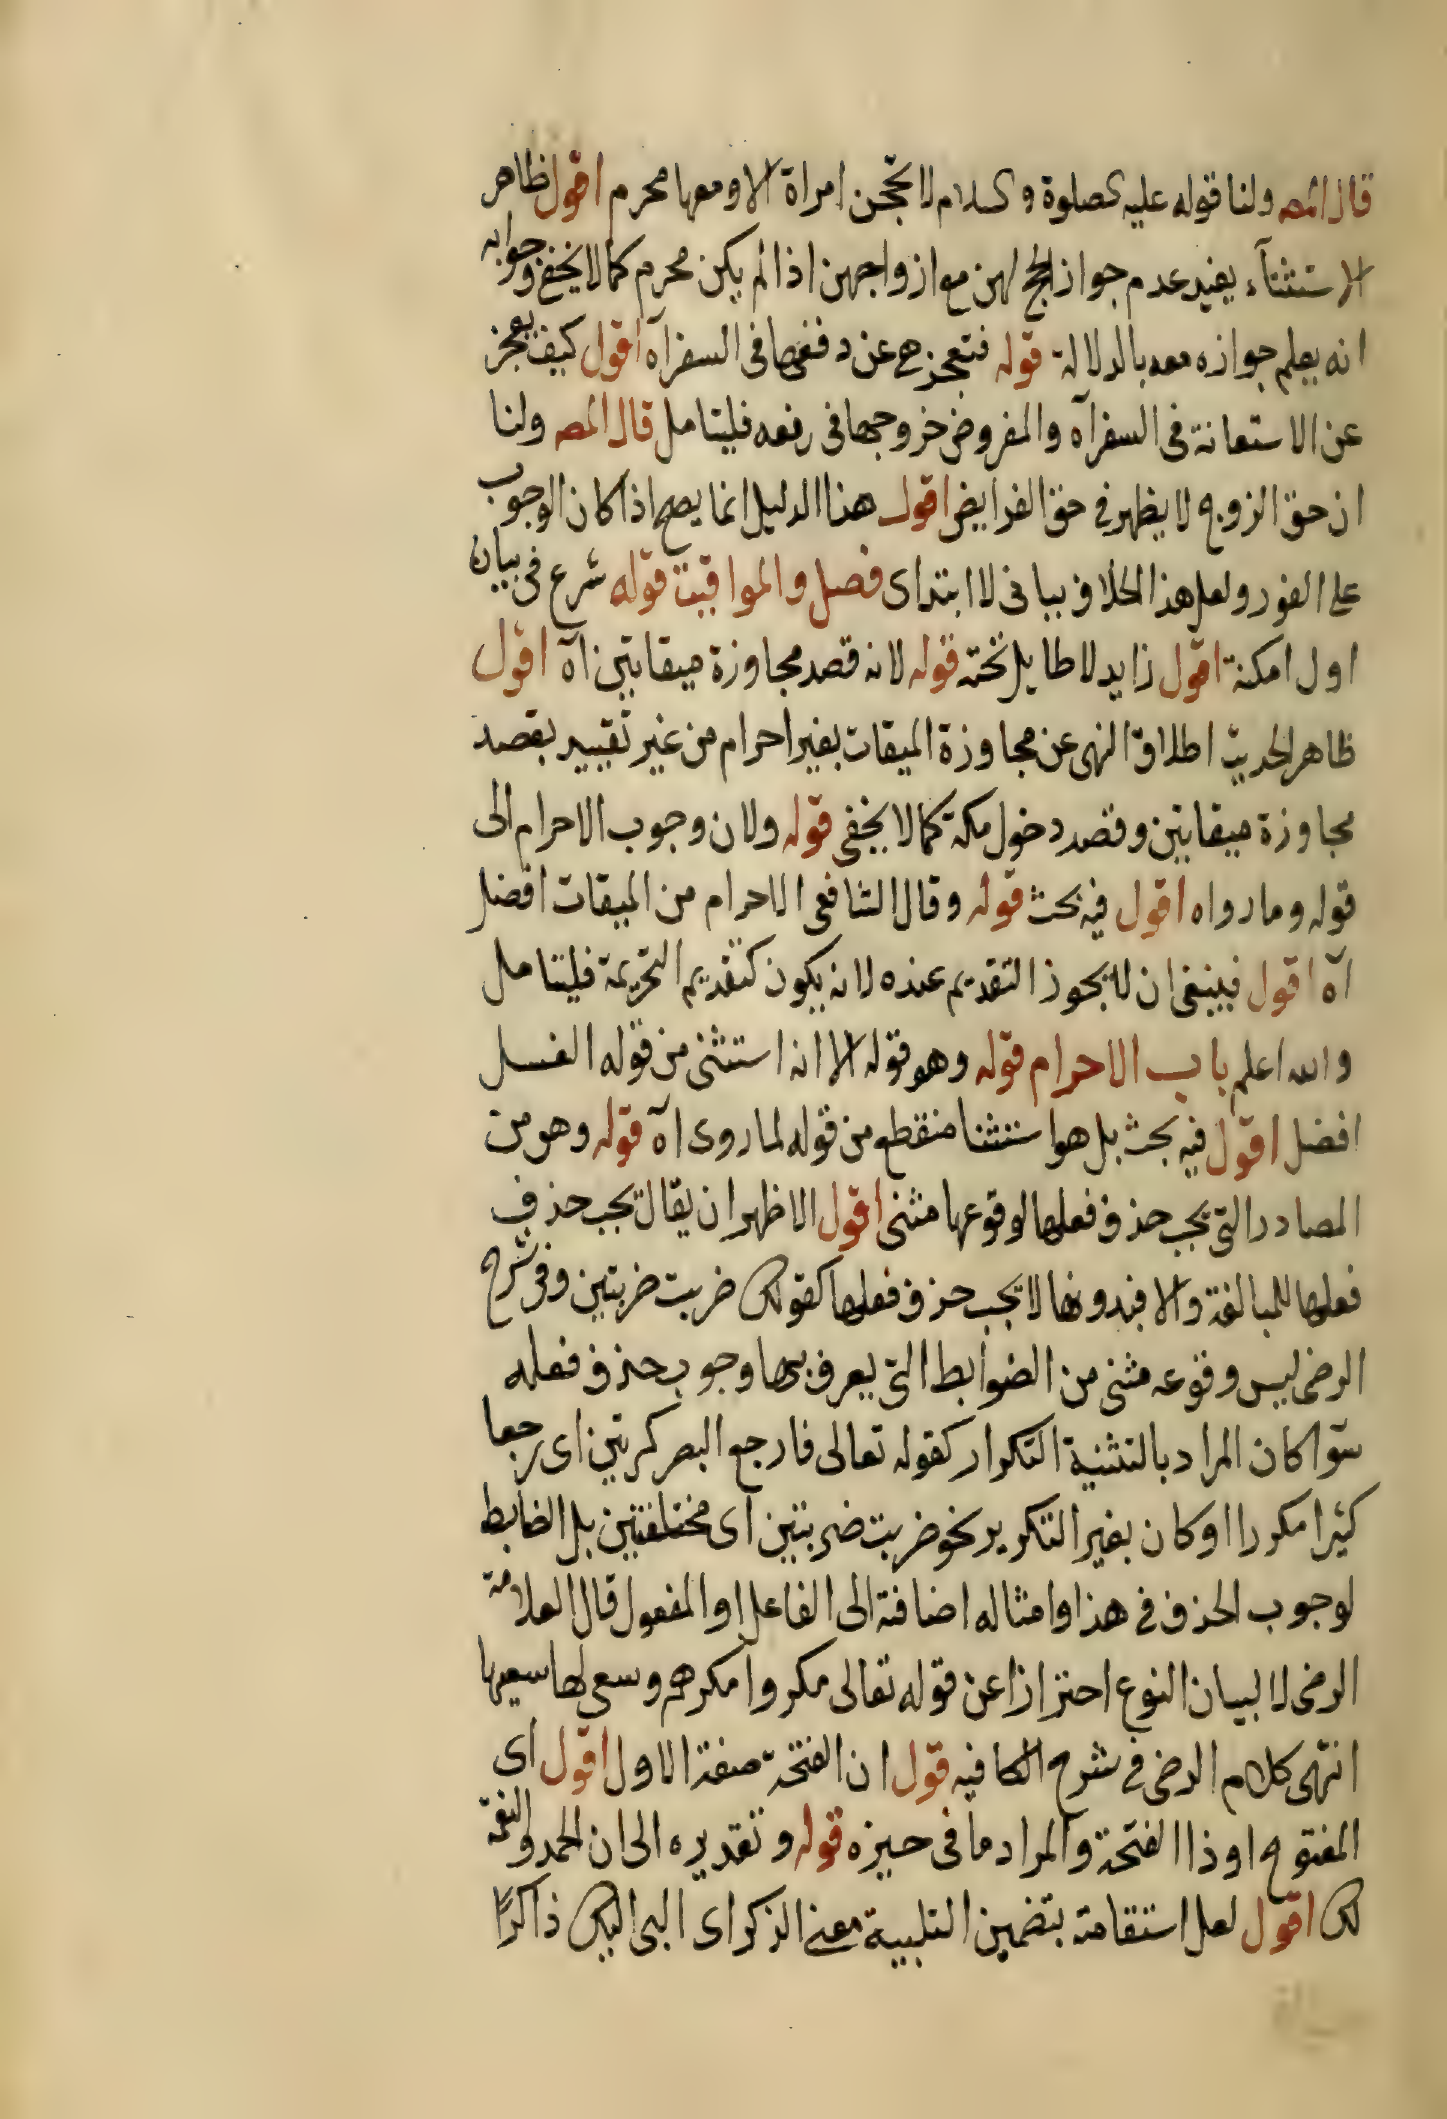 قال المص ولنا قوله عليه الصلوة والسلام لا تحجن امراة الا ومعها محرم اقول ظاهر
الاستثنآء يفيد عدم جواز الحج لهن مع ازواجهن اذا لم يكن محرم كما لا يخفى وجوابه
انه يعلم جوازه معه بالدلالة قوله فتعجز هي عن دفعها في السفر آه اقول كيف يعجز
عن الاستعانة في السفر آه والمفروض خروجها في رفعه فليتامل قال المص ولنا
ان حق الزوج لا يظهر في حق الفرايض اقول هذا الدليل انما يصح اذا كان الوجوب
على الفور ولعل هذا الخلاف بيانى لا ابتداى فصل والمواقيت قوله شرع في بيان
اول امكنة اقول زايد لا طايل تحته قوله لانه قصد مجاوزة ميقاتين آه اقول
ظاهر الحديث اطلاق النهى عن مجاوزة الميقات بغير احرام من غير تقييد بقصد
مجاوزة ميقاتين وقصد دخول مكة كما لا يخفى قوله ولان وجوب الاحرام الى
قوله وما رواه اقول فيه بحث قوله وقال الشافعى الاحرام من الميقات افضل
آه اقول فينبغى ان لا يجوز التقديم عنده لانه يكون كتقديم التحريمة فليتامل
والله اعلم باب الاحرام قوله وهو قوله الا انه استثنى من قوله الغسل
افضل اقول فيه بحث بل هو استثنا منقطع من قوله لما روى آه قوله وهو من
المصادر التى يجب حذف فعلها لوقوعها مثنى اقول الاظهر ان يقال يجب حذف
فعلها للمبالغة والا فبدونها لا يجب حذف فعلها كقولك ضربت ضربتين وفى شرح
الرضى ليس وقوعه مثنى من الضوابط التى يعرف بها وجوب حذف فعله
سوآ كان المراد بالتثنية التكرار كقوله تعالى فارجع البصر كرتين اى رجعا
كثيرا مكررا او كان بغير التكرير نحو ضربت ضربتين اى مختلفتين بل الضابط
لوجوب الحذف في هذا وامثاله اضافته الى الفاعل او المفعول قال العلامة
الرضى لا لبيان النوع احترازا عن قوله تعالى مكروا مكرهم وسعى لها سعيها
انتهى كلام الرضى في شرح الكافيه قول ان الفتحة صفة الاول اقول اى
المفتوح او ذا الفتحة والمراد ما في حيزه قوله وتقديره الى ان الحمد والنعمة
لك اقول لعل استقامته بتضمين التلبية معنى الذكر اى البى اليك ذاكرًا